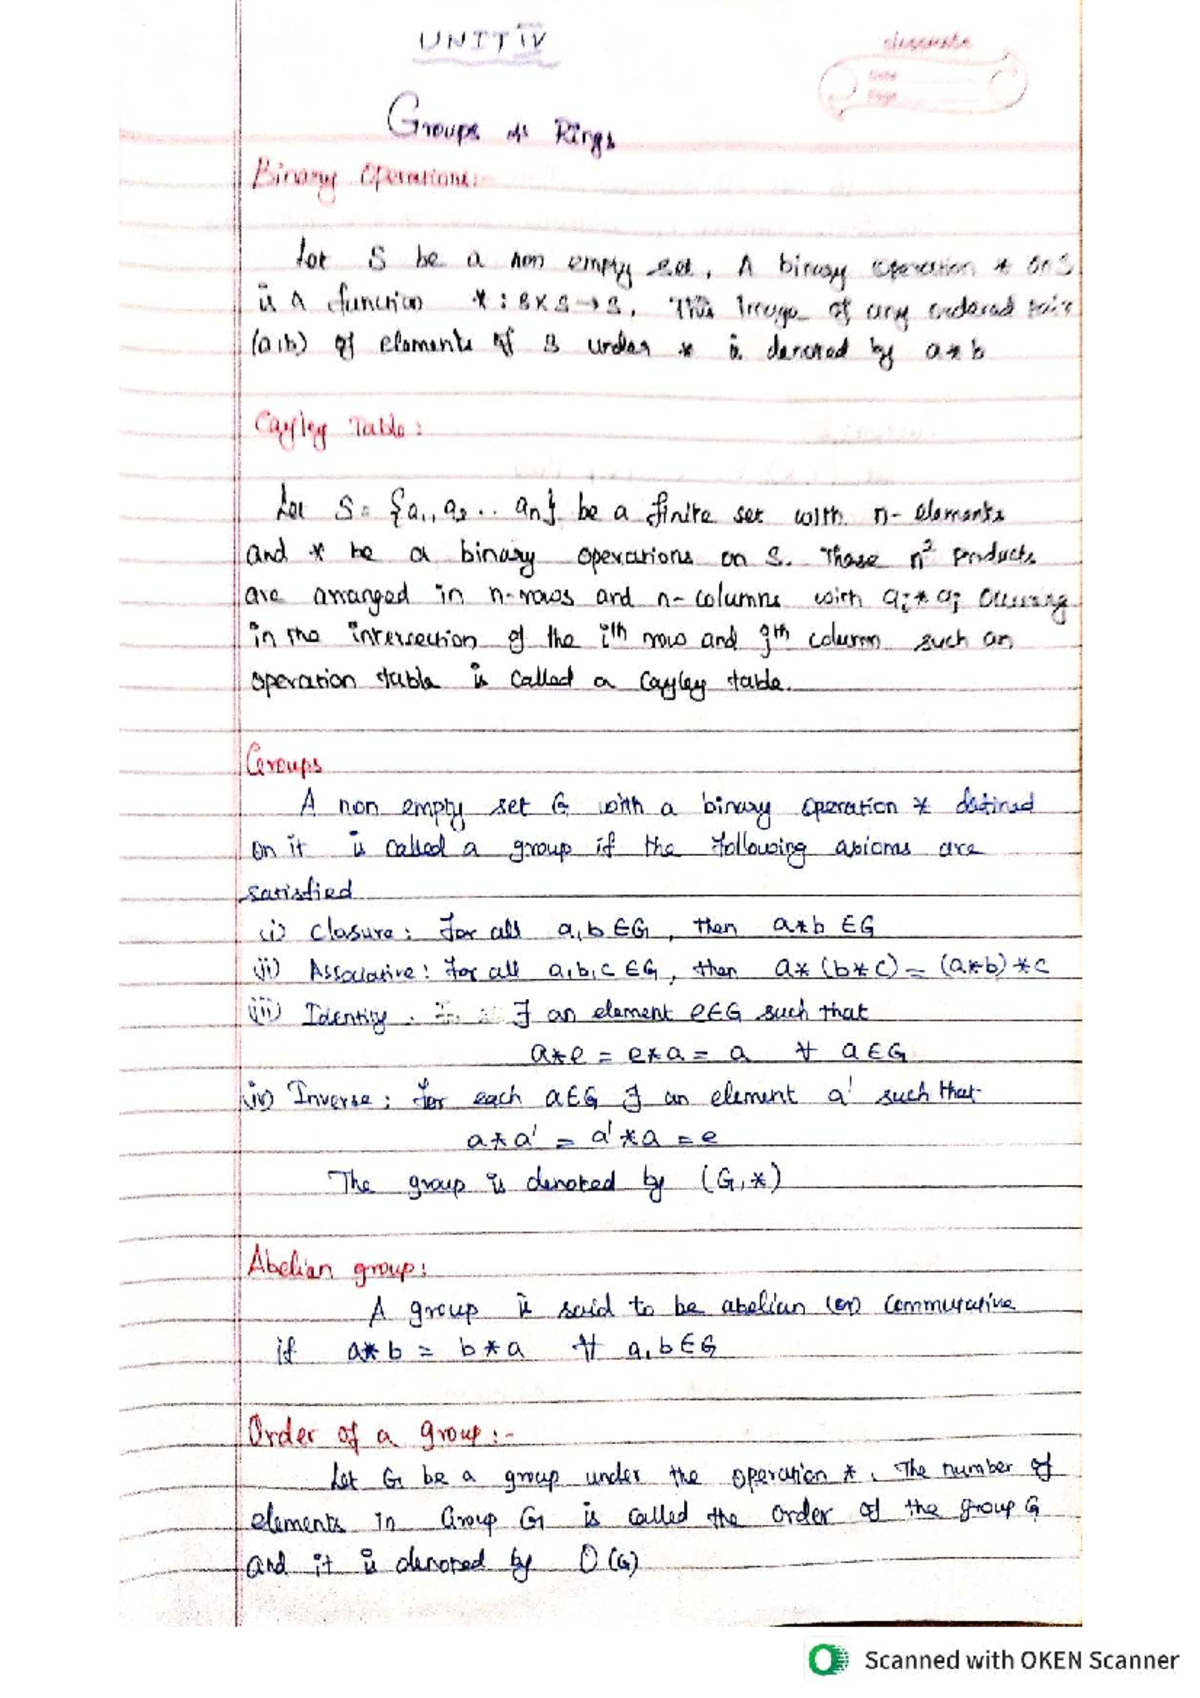 UNIT IV
classmate
Date
Page
Groups & Rings
Binary Operations:-
Let S be a non empty set. A binary operation * on S
is a function * : S×S→S. The Image of any ordered pair
(a,b) of elements of S under * is denoted by a*b
Cayley Table:
Let S = {a1, a2 .. an} be a finite set with n- elements
and * be a binary operations on S. These n² products
are arranged in n-rows and n-columns with ai * aj occuring
in the intersection of the ith row and jth column such an
operation table is called a Cayley table.
Groups
A non empty set G with a binary operation * defined
on it is called a group if the following axioms are
satisfied
(i) Closure: For all a,b ∈G, then a*b ∈G
(ii) Associative: for all a,b,c ∈G, then a*(b*c) = (a*b)*c
(iii) Identity. ∃ an element e∈G such that
a*e = e*a = a ∀ a∈G
(iv) Inverse: for each a∈G ∃ an element a' such that
a*a' = a'*a = e
The group is denoted by (G,*)
Abelian group:
A group is said to be abelian (or) commutative
if a*b = b*a ∀ a,b∈G
Order of a group:-
Let G be a group under the operation *. The number of
elements in Group G is called the order of the group G
and it is denoted by O(G)
Scanned with OKEN Scanner